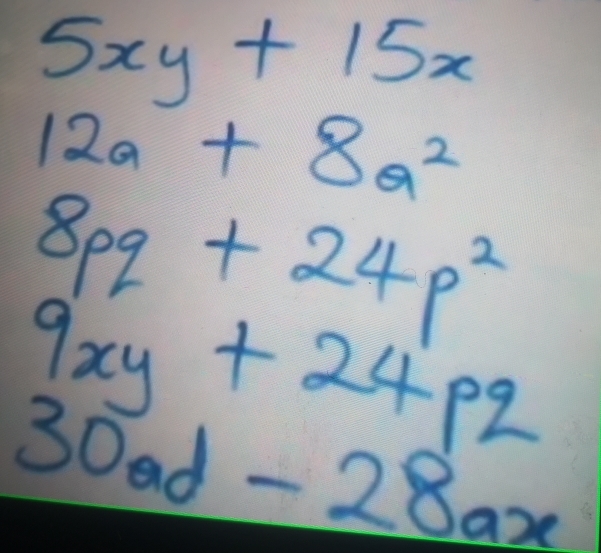 5xy + 15x
12a + 8a²
8pq + 24p²
9xy + 24pq
30ad - 28ax